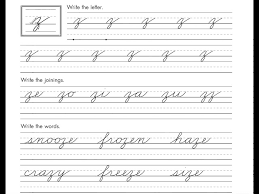 Write the letter.
z z z z z z
z z z z z z z
Write the joinings.
ze zo za zu zz
Write the words.
snooze frozen haze
crazy freeze size